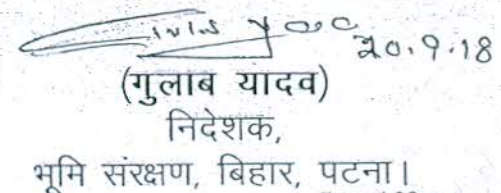 20.9.18
(गुलाब यादव)
निदेशक,
भूमि संरक्षण, बिहार, पटना।